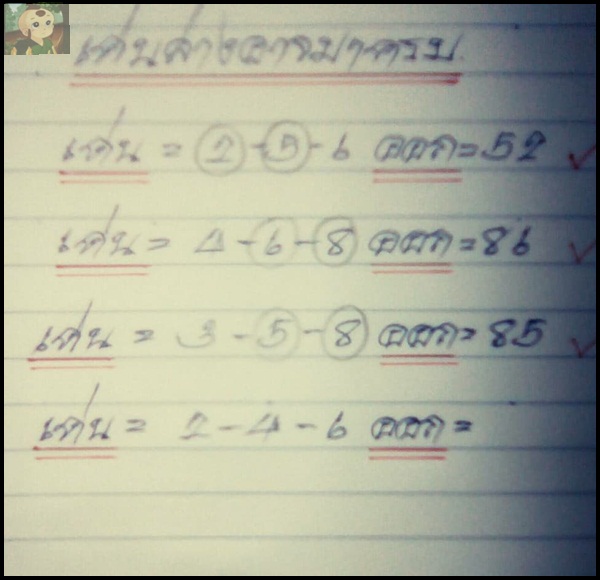 เด่นล่างอาจมาครบ
เด่น = 2-5-6 ออก=52
เด่น = 4-6-8 ออก=86
เด่น = 3-5-8 ออก=85
เด่น = 2-4-6 ออก=